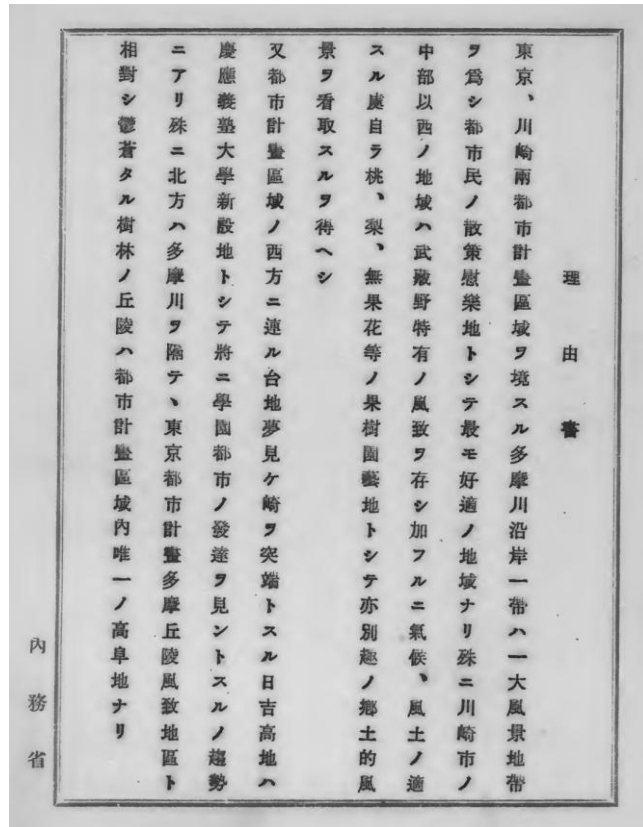 理由書
東京、川崎兩都市計畫區域ヲ境スル多摩川沿岸一帶ハ一大風景地帶
ヲ爲シ都市民ノ散策慰樂地トシテ最モ好適ノ地域ナリ殊ニ川崎市ノ
中部以西ノ地域ハ武藏野特有ノ風致ヲ存シ加フルニ氣候、風土ノ適
スル處自ラ桃、梨、無果花等ノ果樹園藝地トシテ亦別趣ノ鄕土的風
景ヲ看取スルヲ得ヘシ
又都市計畫區域ノ西方ニ連ル台地夢見ケ崎ヲ突端トスル日吉高地ハ
慶應義塾大學新設地トシテ將ニ學園都市ノ發達ヲ見ントスルノ趨勢
ニアリ殊ニ北方ハ多摩川ヲ隔テヽ東京都市計畫多摩丘陵風致地區ト
相對シ鬱蒼タル樹林ノ丘陵ハ都市計畫區域內唯一ノ高阜地ナリ
內務省